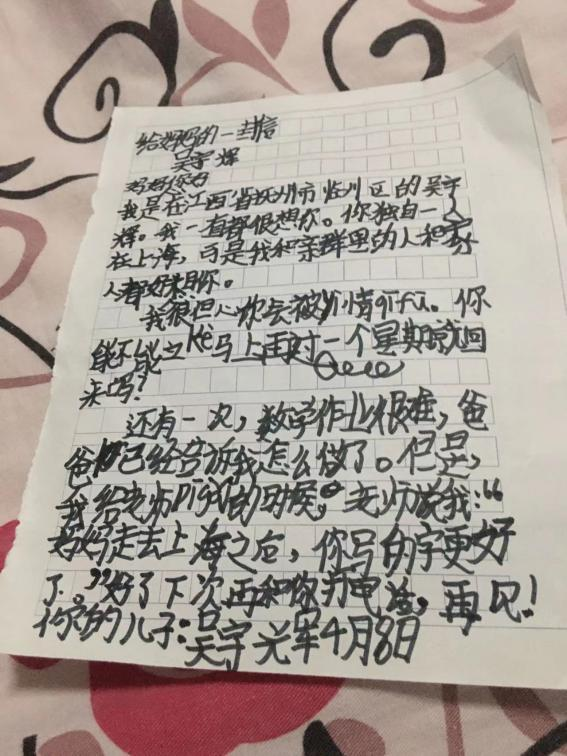 给妈妈的一封信
吴宇辉
妈妈你好
我是在江西省抚州市临川区的吴宇
辉。我一直都很想你。你独自一人
在上海，可是我和亲群里的人和家
人都好想你。
我很但心你会被疫情qīfu。你
能不能立kè马上用对一个星期就回
来吗？
还有一次，数学作业很难，爸
爸已经告诉我怎么做了。但是，
我给老师pīgǎi的时候，老师说我：“
妈妈走去上海之后，你写的字更好
了。”好了下次再和你打电话，再见！
你的儿子：吴宇辉4月8日